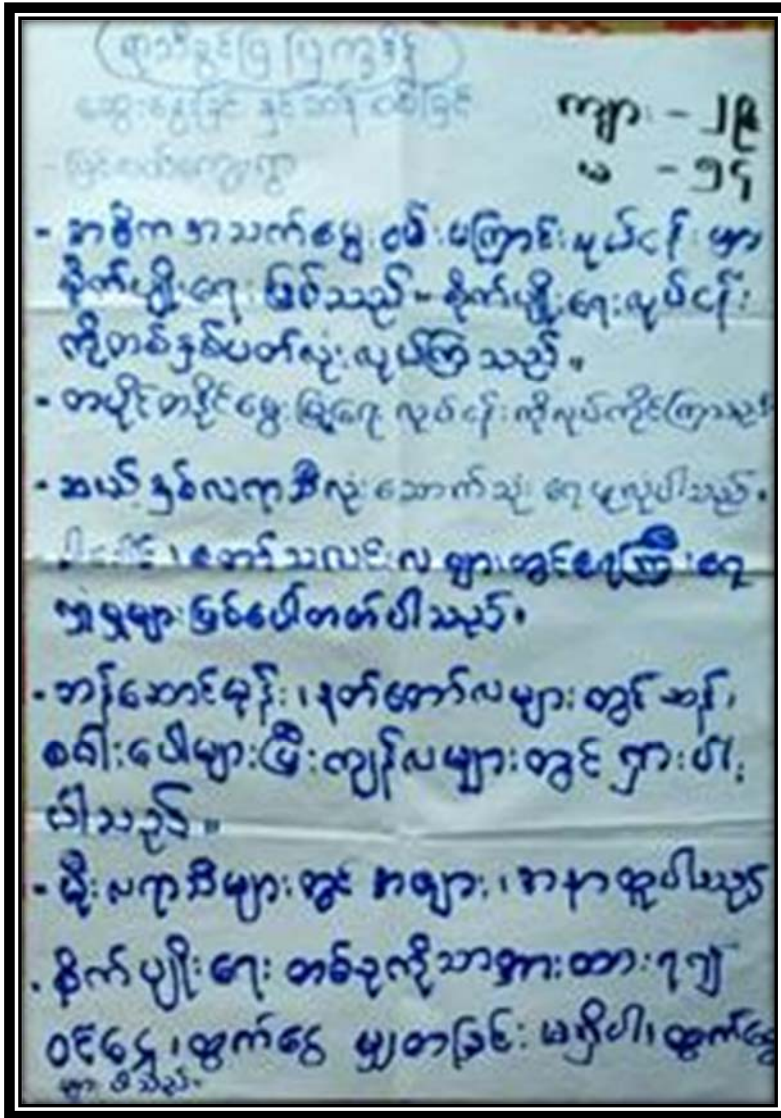 ရာသီခွင်ပြ ပြက္ခဒိန်
ဆွေးနွေးခြင်း နှင့်သုံးသပ်ခြင်း
ကျား - ၂၉
- မြင်းဝယ်ကျေးရွာ
မ - ၁၄
- အဓိကအသက်မွေးဝမ်းကြောင်းလုပ်ငန်းမှာ
စိုက်ပျိုးရေးဖြစ်သည်- စိုက်ပျိုးရေးလုပ်ငန်း
ကိုတစ်နှစ်ပတ်လုံးလုပ်ကြသည်။
- တပိုင်တနိုင်မွေးမြူရေးလုပ်ငန်းကိုလုပ်ကိုင်ကြသည်
- ဆယ့်နှစ်လရာသီလုံးသောက်သုံးရေမလုံပါသည်။
တော်သလင်းလများတွင်ရေကြီးရေ
လျှံမှုများဖြစ်ပေါ်တတ်ပါသည်။
- တန်ဆောင်မုန်း၊နတ်တော်လများတွင်ဆန်၊
စပါးပေါများပြီးကျန်လများတွင်ရှားပါး
ပါသည်။
- မိုးလရာသီများတွင်အဖျား၊အနာထူပါသည်
. စိုက်ပျိုးရေးတစ်ခုကိုသာအားထား၍
ဝင်ငွေ၊ထွက်ငွေ မျှတခြင်းမရှိပါ၊ထွက်ငွေ
များပါသည်။